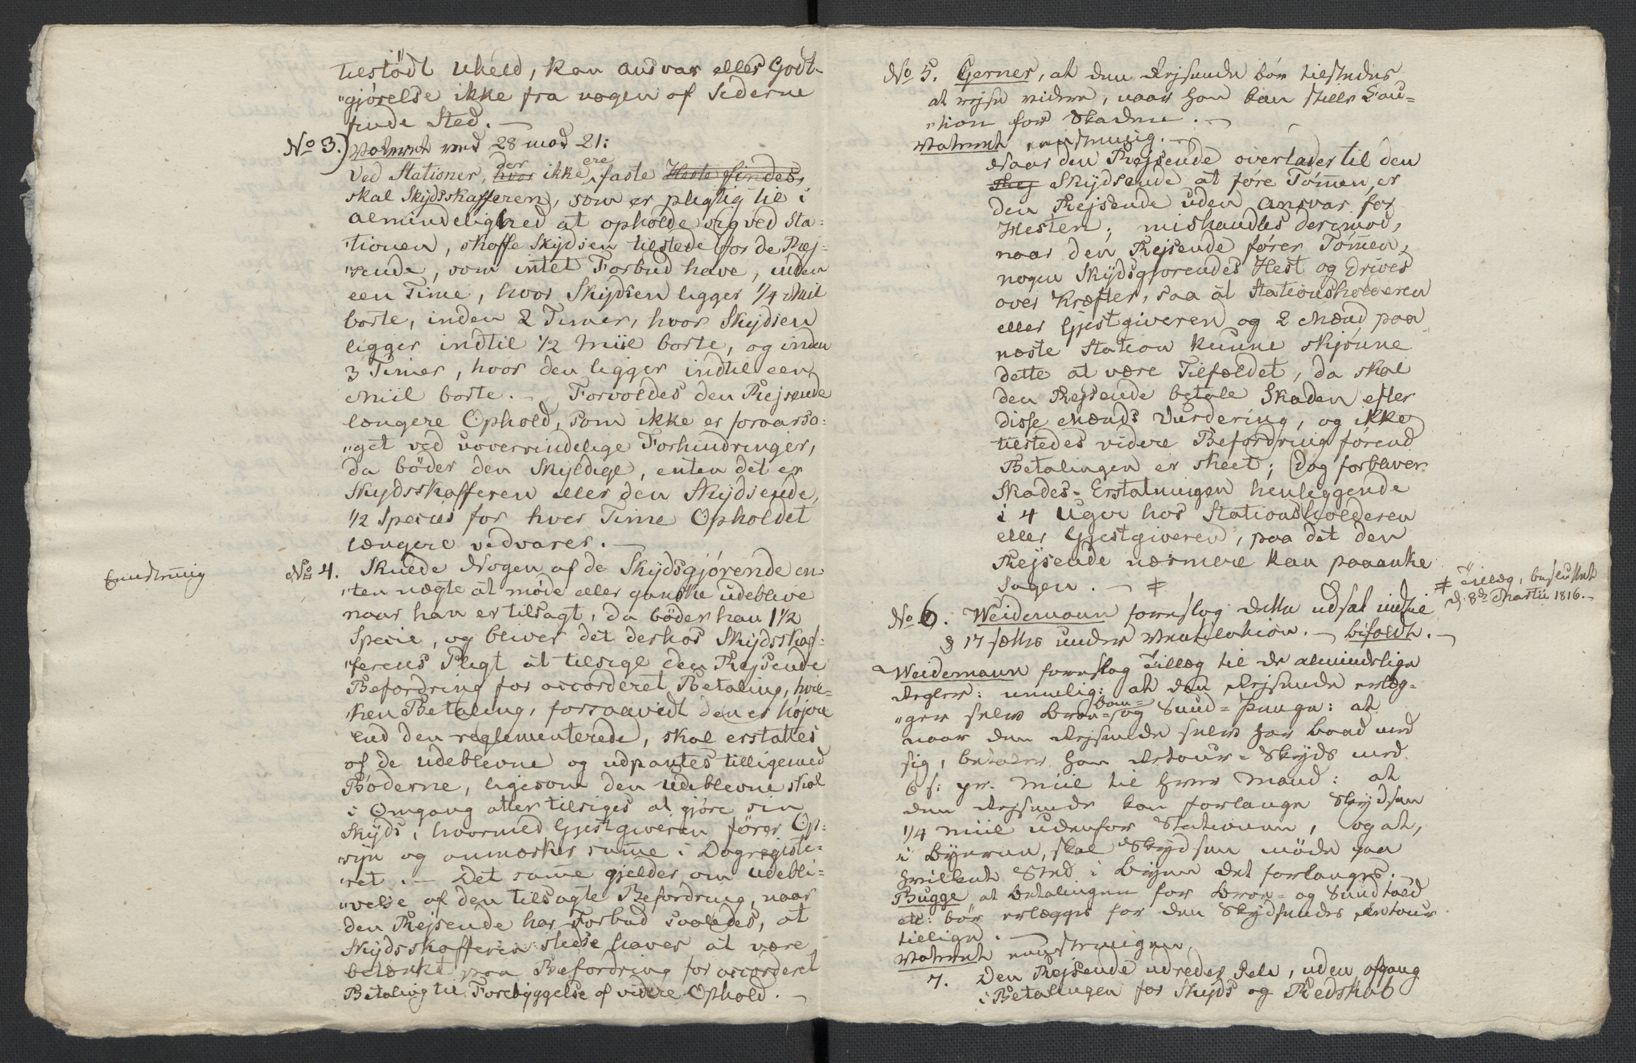 tilstødt Uheld, kan Andvar eller Godt-
"gjørelse ikke fra nogen af Siderne
finde Sted. —
No 3.) Votert med 28 mod 21:
Ved Stationer, hvor der ikke ere faste Heste findes,
skal Skydsskafferen, som er pligtig til i
Almindelighed at opholde sig ved Sta-
"tionen, skaffe Skydsen tilstede for de Rej-
"sende, som intet Forbud have, inden
een Time, hvor Skydsen ligger 1/4 Miil
borte, inden 2 Timer, hvor Skydsen
ligger indtil 1/2 Miil borte, og inden
3 Timer, hvor den ligger indtil een
Miil borte. — Forvoldes den Rejsende
længere Ophold, som ikke er foraarsa-
"get ved uovervindelige Forhindringer,
da bøder den Skyldige, enten det er
Skydsskafferen eller den Skydsende,
1/2 Specie for hver Time Opholdet
længere vedvarer. —
Eenstemmig
No 4. Skulde Nogen af de Skydsgjørende en-
"ten nægte at møde eller ganske udeblive
naar han er tilsagt, da bøder han 1 1/2
Specie, og bliver det derhos Skydsskaf-
"ferens Pligt at tilsige den Rejsende
Befordring for accorderet Betaling, hvil-
"ken Betaling, forsaavidt den er højere
end den reglementerede, skal erstattes
af de udeblevne og udpantes tilligemed
Bøderne, ligesom den Udeblevne skal
i Omgang atter tilsiges at gjøre sin
Skyds, hvormed Gjestgiveren fører Op-
"syn og anmærker samme i Dagregiste-
"ret. — Det samme gjelder om Udebli-
"velse af den tilsagte Befordring, naar
den Rejsende har Forbud saaledes, at
Skydsskafferen stedse haver at være
betænkt paa Befordring for accorderet
Betaling til Forebyggelse af videre Ophold. —
No 5. Gerner, at den Rejsende bør tilstedes
at rejse videre, naar han kan stille Cau-
"tion for Skaden. —
Voteret eenstemmig. —
Naar den Rejsende overlader til den
Skej Skydsende at føre Tømmen, er
den Rejsende uden Ansvar for
Hesten; mishandles derimod,
naar den Rejsende fører Tømmen,
nogen Skydsgjørendes Hest og drives
over Kræfter, saa at Stationsholderen
eller Gjestgiveren og 2 Mænd paa
næste Station kunne skjønne
dette at være Tilfældet, da skal
den Rejsende betale Skaden efter
disse Mænds Vurdering, og ikke
tilstedes videre Befordring førend
Betalingen er skeet; Dog forbliver
Skades-Erstatningen henliggende
i 4 Uger hos Stationsholderen
eller Gjestgiveren, paa det den
Rejsende nærmere kan paaanke
Sagen. — ‡
‡ Tillæg, besluttet
d. 8de Martii 1816. —
No 6. Weidemann foreslog dette udsat indtil
§ 17 sættes under Ventilation. — bifaldt. —
Weidemann foreslog Tillæg til de almindelige
Regler: nemlig: at den Rejsende erlæg-
"ger selv Broe- Bom- og Sund-Penge: at
naar den Rejsende selv har Baad med
sig, betaler han Retour-Skyds med
6 s: pr. Miil til hver Mand: at
den Rejsende kan forlange Skydsen
1/4 Miil udenfor Stationen, og at,
i Byerne, skal Skydsen møde paa
hvilket Sted i Byen det forlanges.
Bugge at Betalingen for Broe- og Sundtold
etc: bør erlægges for den Skydsendes Retour
tillige. —
Voteret eenstemmigen,
7. Den Rejsende udreder selv, uden Afgang
i Betalingen for Skyds og Redskab